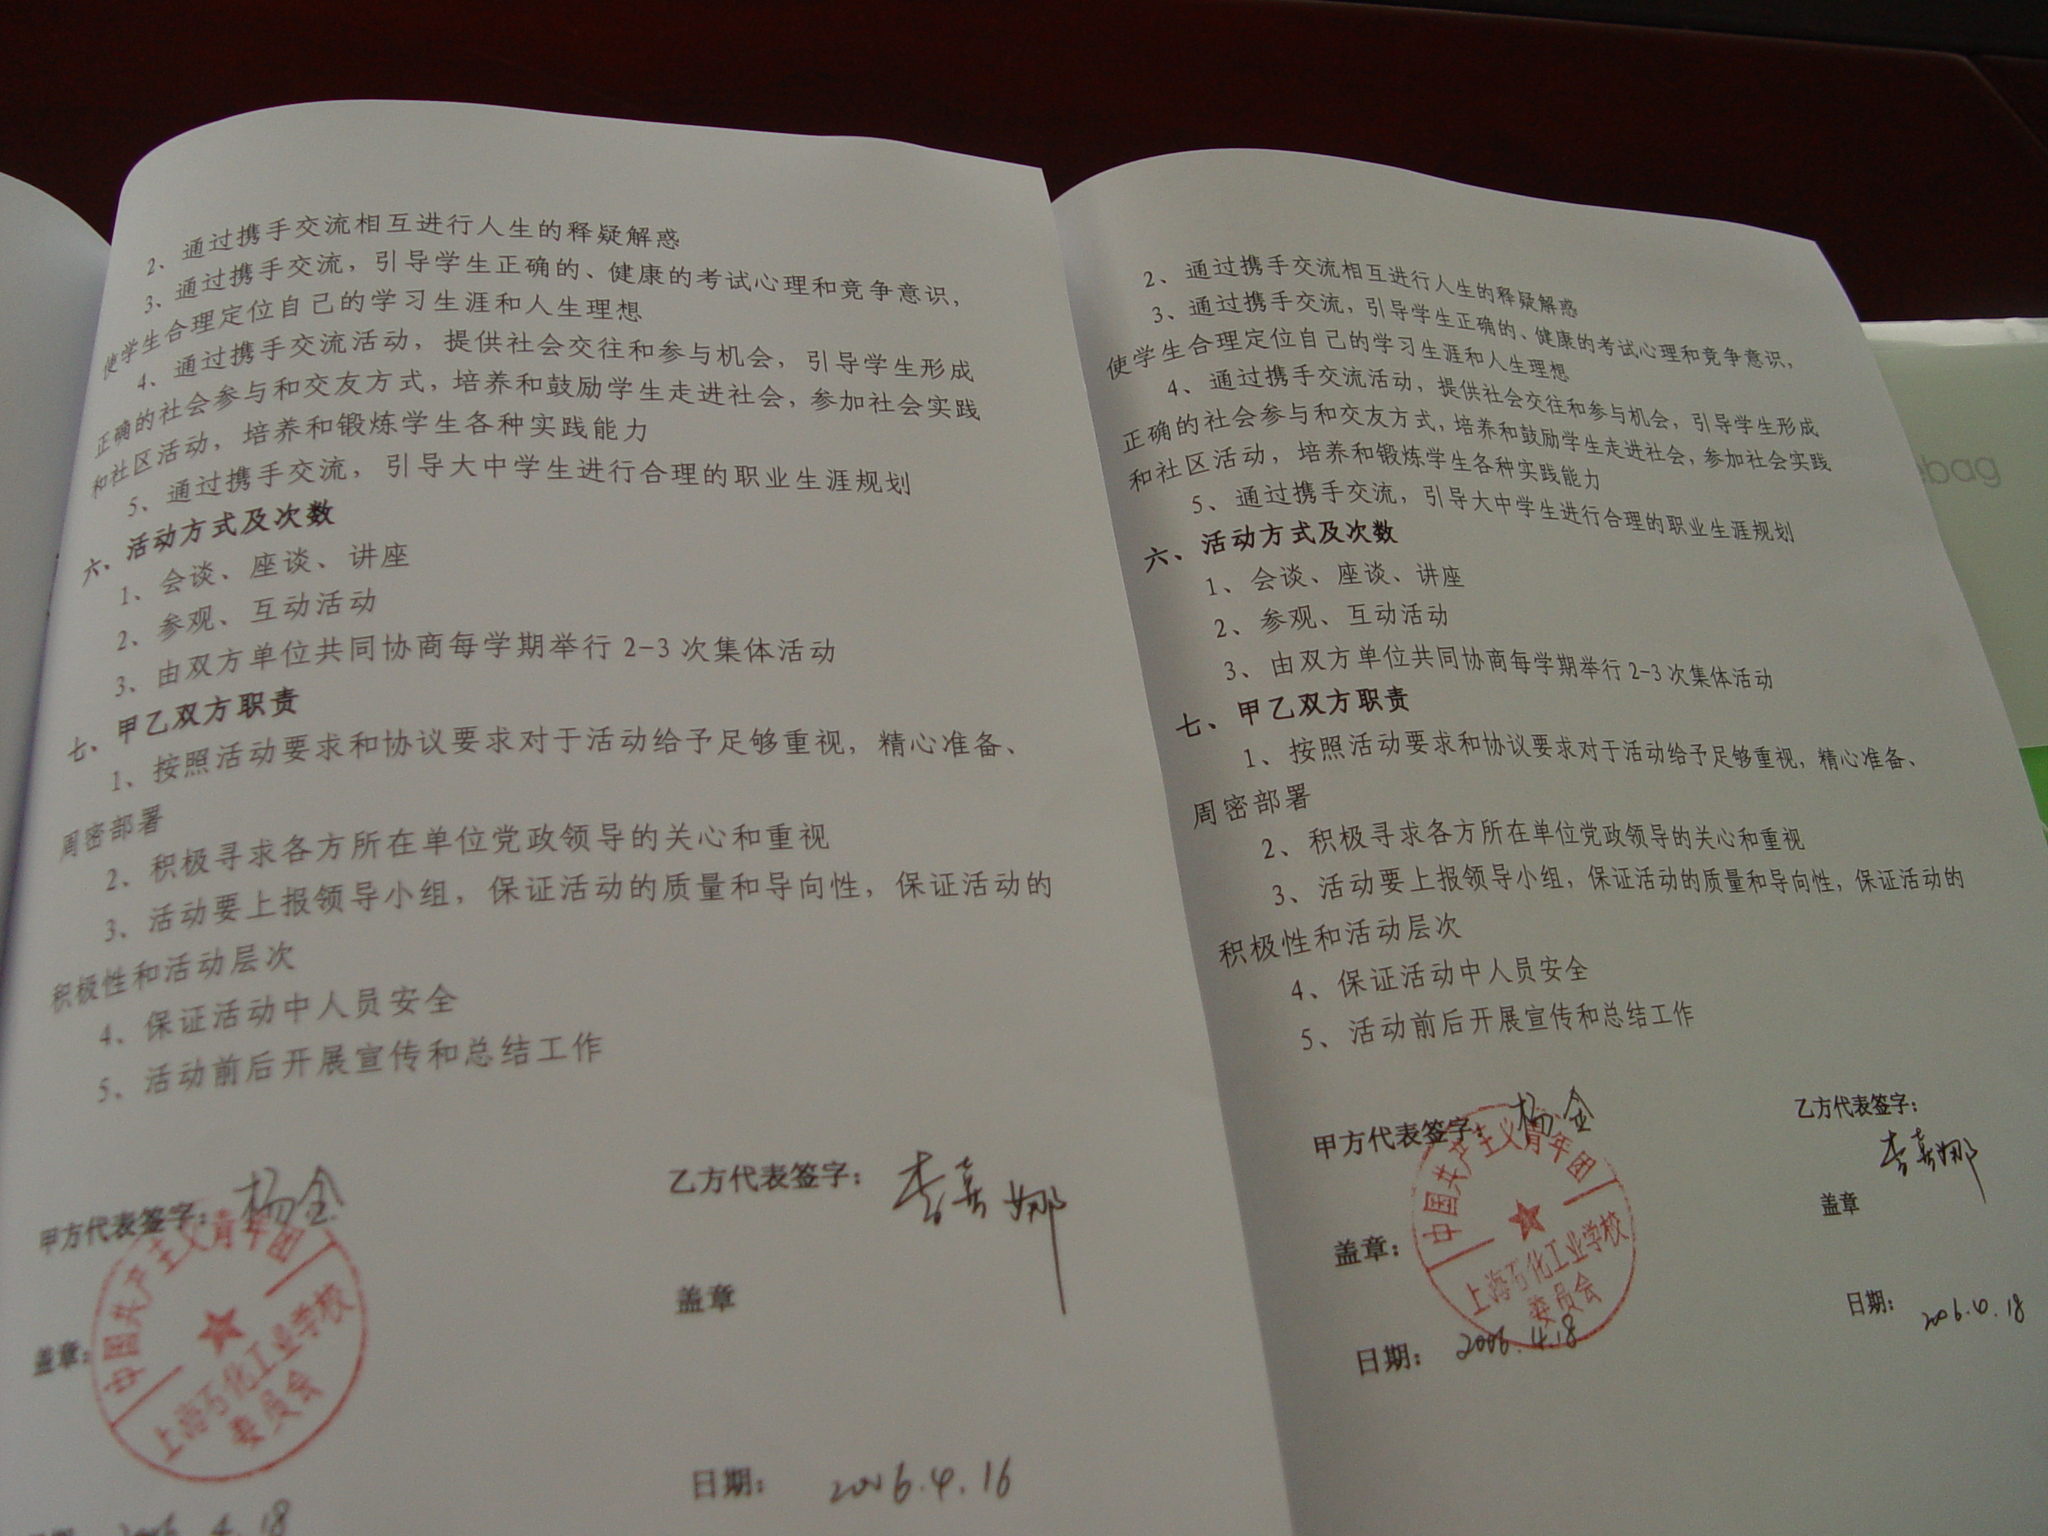 2、通过携手交流相互进行人生的释疑解惑
3、通过携手交流，引导学生正确的、健康的考试心理和竞争意识，
使学生合理定位自己的学习生涯和人生理想
4、通过携手交流活动，提供社会交往和参与机会，引导学生形成
正确的社会参与和交友方式，培养和鼓励学生走进社会，参加社会实践
和社区活动，培养和锻炼学生各种实践能力
5、通过携手交流，引导大中学生进行合理的职业生涯规划
六、活动方式及次数
1、会谈、座谈、讲座
2、参观、互动活动
3、由双方单位共同协商每学期举行2-3次集体活动
七、甲乙双方职责
1、按照活动要求和协议要求对于活动给予足够重视，精心准备、
周密部署
2、积极寻求各方所在单位党政领导的关心和重视
3、活动要上报领导小组，保证活动的质量和导向性，保证活动的
积极性和活动层次
4、保证活动中人员安全
5、活动前后开展宣传和总结工作
甲方代表签字：杨金
乙方代表签字：李喜娜
盖章：
中国共产主义青年团
上海石化工业学校
委员会
盖章
日期：2006.4.16
2006.4.18
2、通过携手交流相互进行人生的释疑解惑
3、通过携手交流，引导学生正确的、健康的考试心理和竞争意识，
使学生合理定位自己的学习生涯和人生理想
4、通过携手交流活动，提供社会交往和参与机会，引导学生形成
正确的社会参与和交友方式，培养和鼓励学生走进社会，参加社会实践
和社区活动，培养和锻炼学生各种实践能力
5、通过携手交流，引导大中学生进行合理的职业生涯规划
六、活动方式及次数
1、会谈、座谈、讲座
2、参观、互动活动
3、由双方单位共同协商每学期举行2-3次集体活动
七、甲乙双方职责
1、按照活动要求和协议要求对于活动给予足够重视，精心准备、
周密部署
2、积极寻求各方所在单位党政领导的关心和重视
3、活动要上报领导小组，保证活动的质量和导向性，保证活动的
积极性和活动层次
4、保证活动中人员安全
5、活动前后开展宣传和总结工作
甲方代表签字：杨金
乙方代表签字：
李喜娜
盖章：
中国共产主义青年团
上海石化工业学校
委员会
盖章
日期：2006.4.18
日期：2006.4.18
ebag